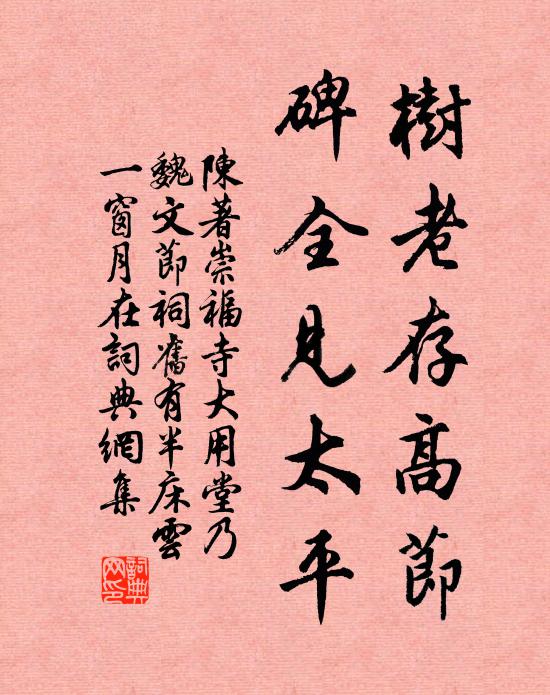 樹老存高節
碑全見太平
陳著崇福寺大用堂乃
魏文節祠舊有半床雲
一窗月在詞典網集
詞典网印